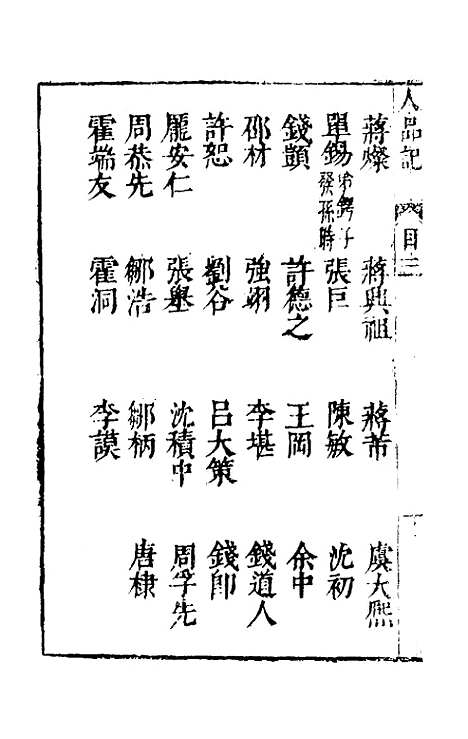 人品記 目三
蔣燦 蔣興祖 蔣芾 虞大熙
單錫 弟鍔子發孫時 張巨 陳敏 沈初
錢顗 許德之 王岡 余中
邵材 強翊 李堪 錢道人
許恕 劉谷 呂大策 錢即
龐安仁 張舉 沈積中 周孚先
周恭先 鄒浩 鄒柄 唐棣
霍端友 霍洞 李謨